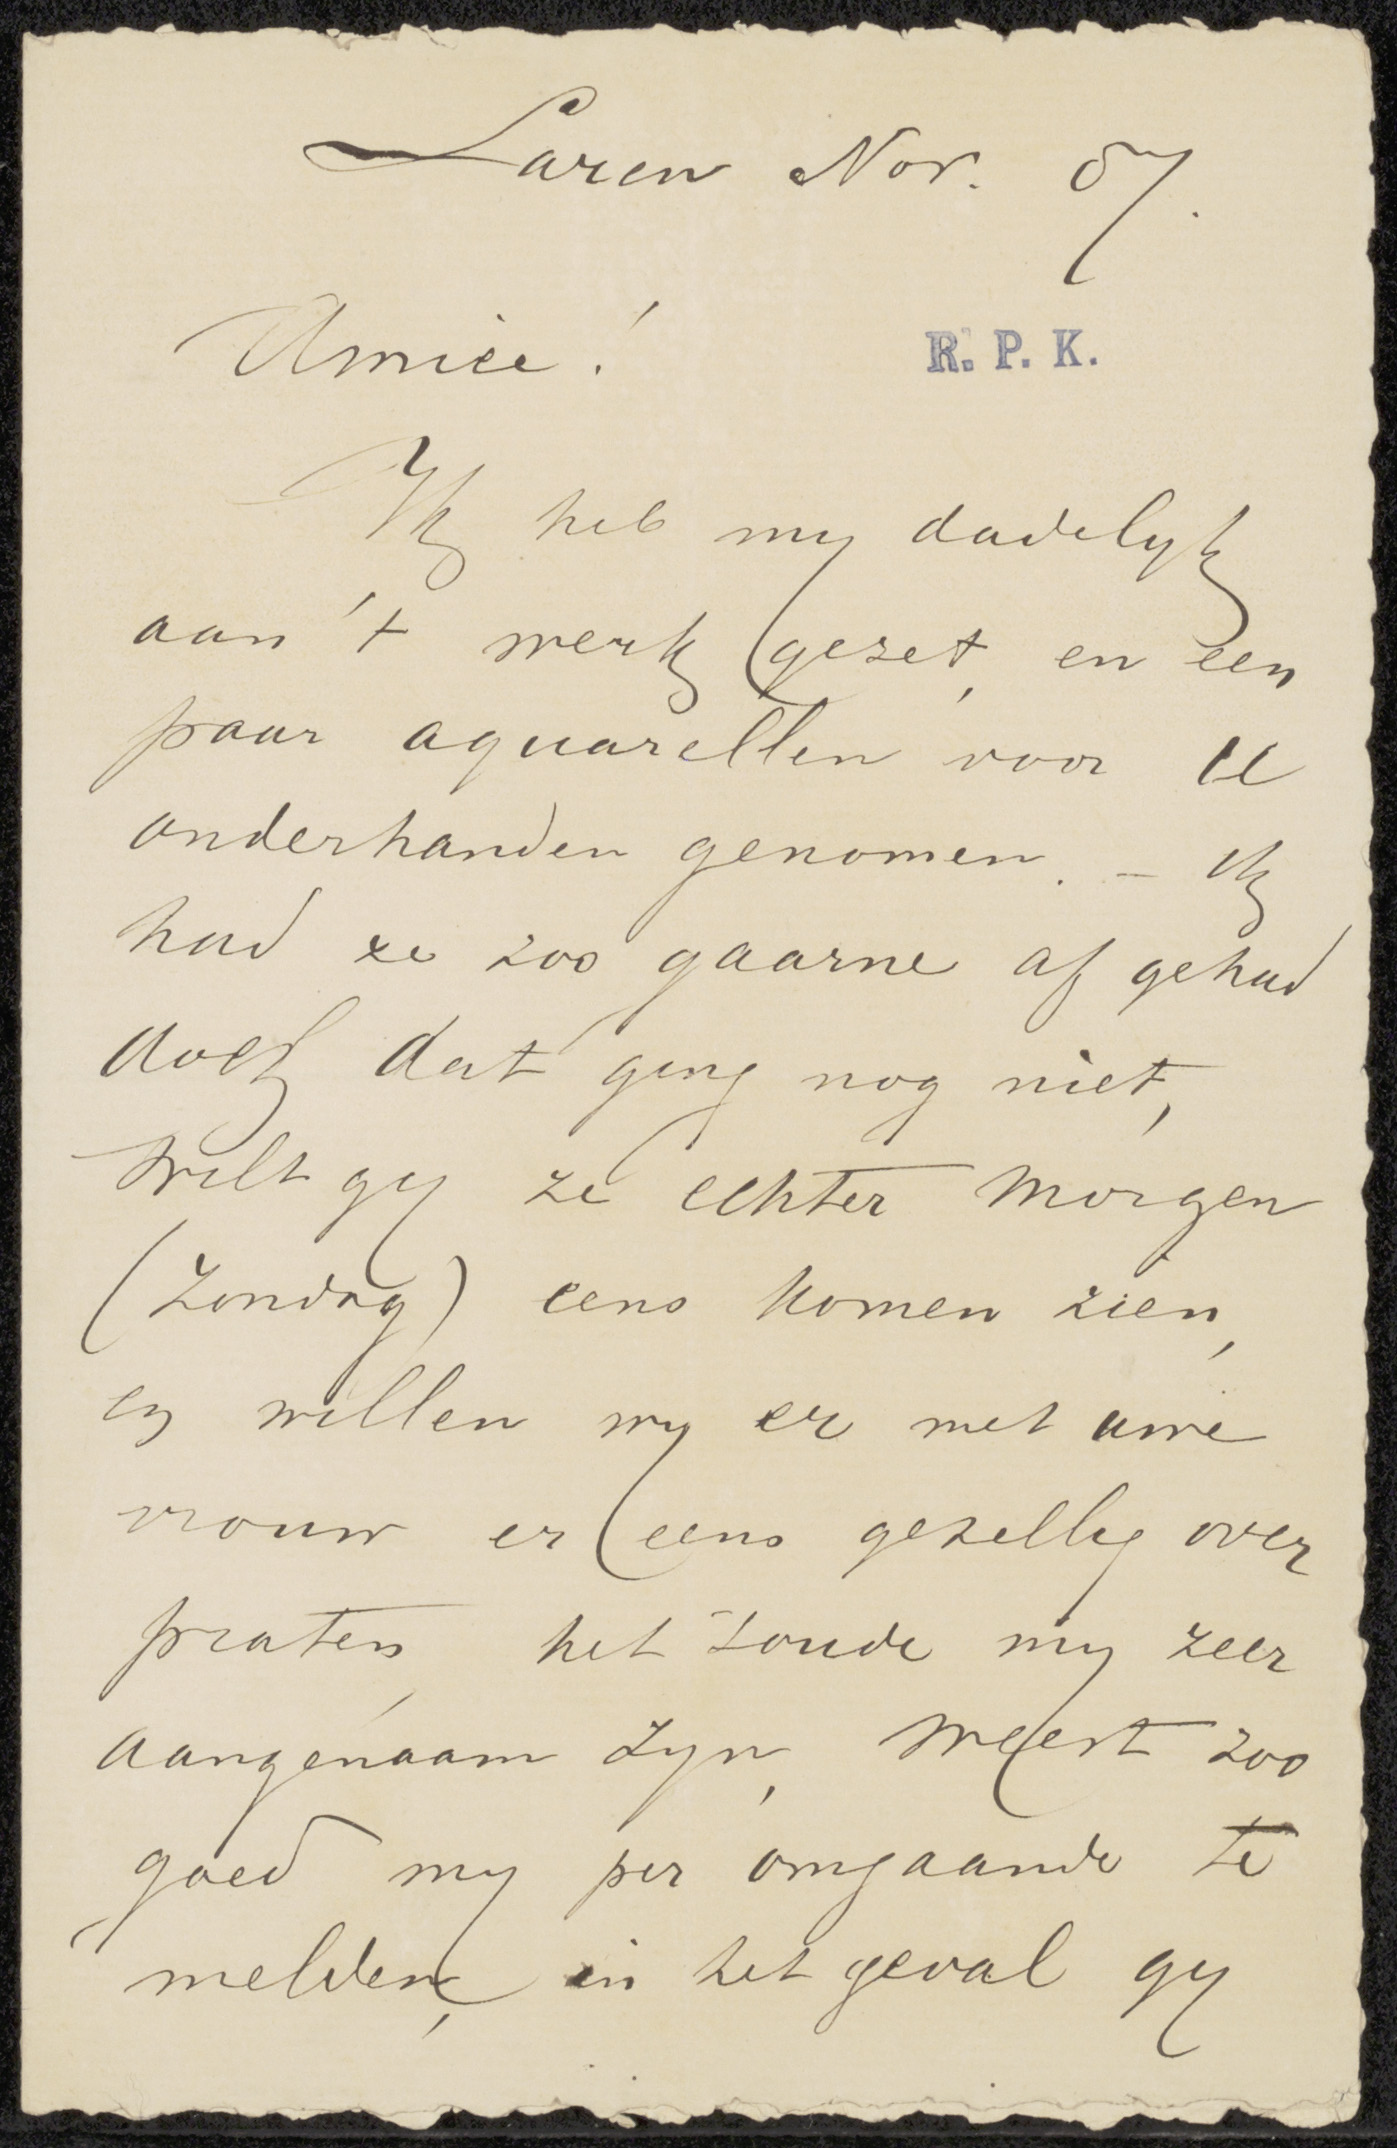 Laren Nov. 07.
Amice!
R. P. K.
Ik heb my dadelyk
aan 't werk gezet, en een
paar aquarellen voor U
onderhanden genomen. – ik
had ze zoo gaarne af gehad
doch dat ging nog niet,
wilt gy ze echter morgen
(Zondag) eens komen zien,
en willen wy er met uwe
vrouw er eens gezellig over
praten, het zoude my zeer
aangenaam zyn, Weest zoo
goed my per omgaande te
melden, in het geval gy